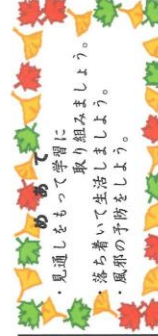 めあて
・見通しをもって学習に
取り組みましょう。
・落ち着いて生活しましょう。
・風邪の予防をしよう。